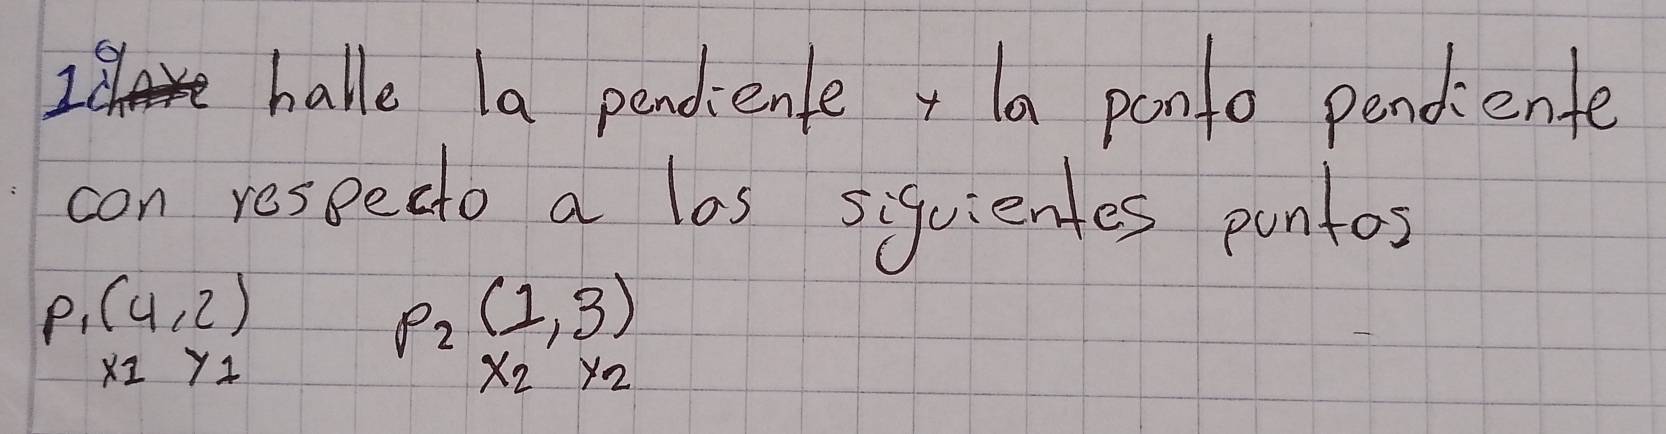 1º halle la pendiente y la punto pendiente
con respecto a los siguientes puntos
P₁(4,2) P₂(1,3)
x1 y1 x2 y2